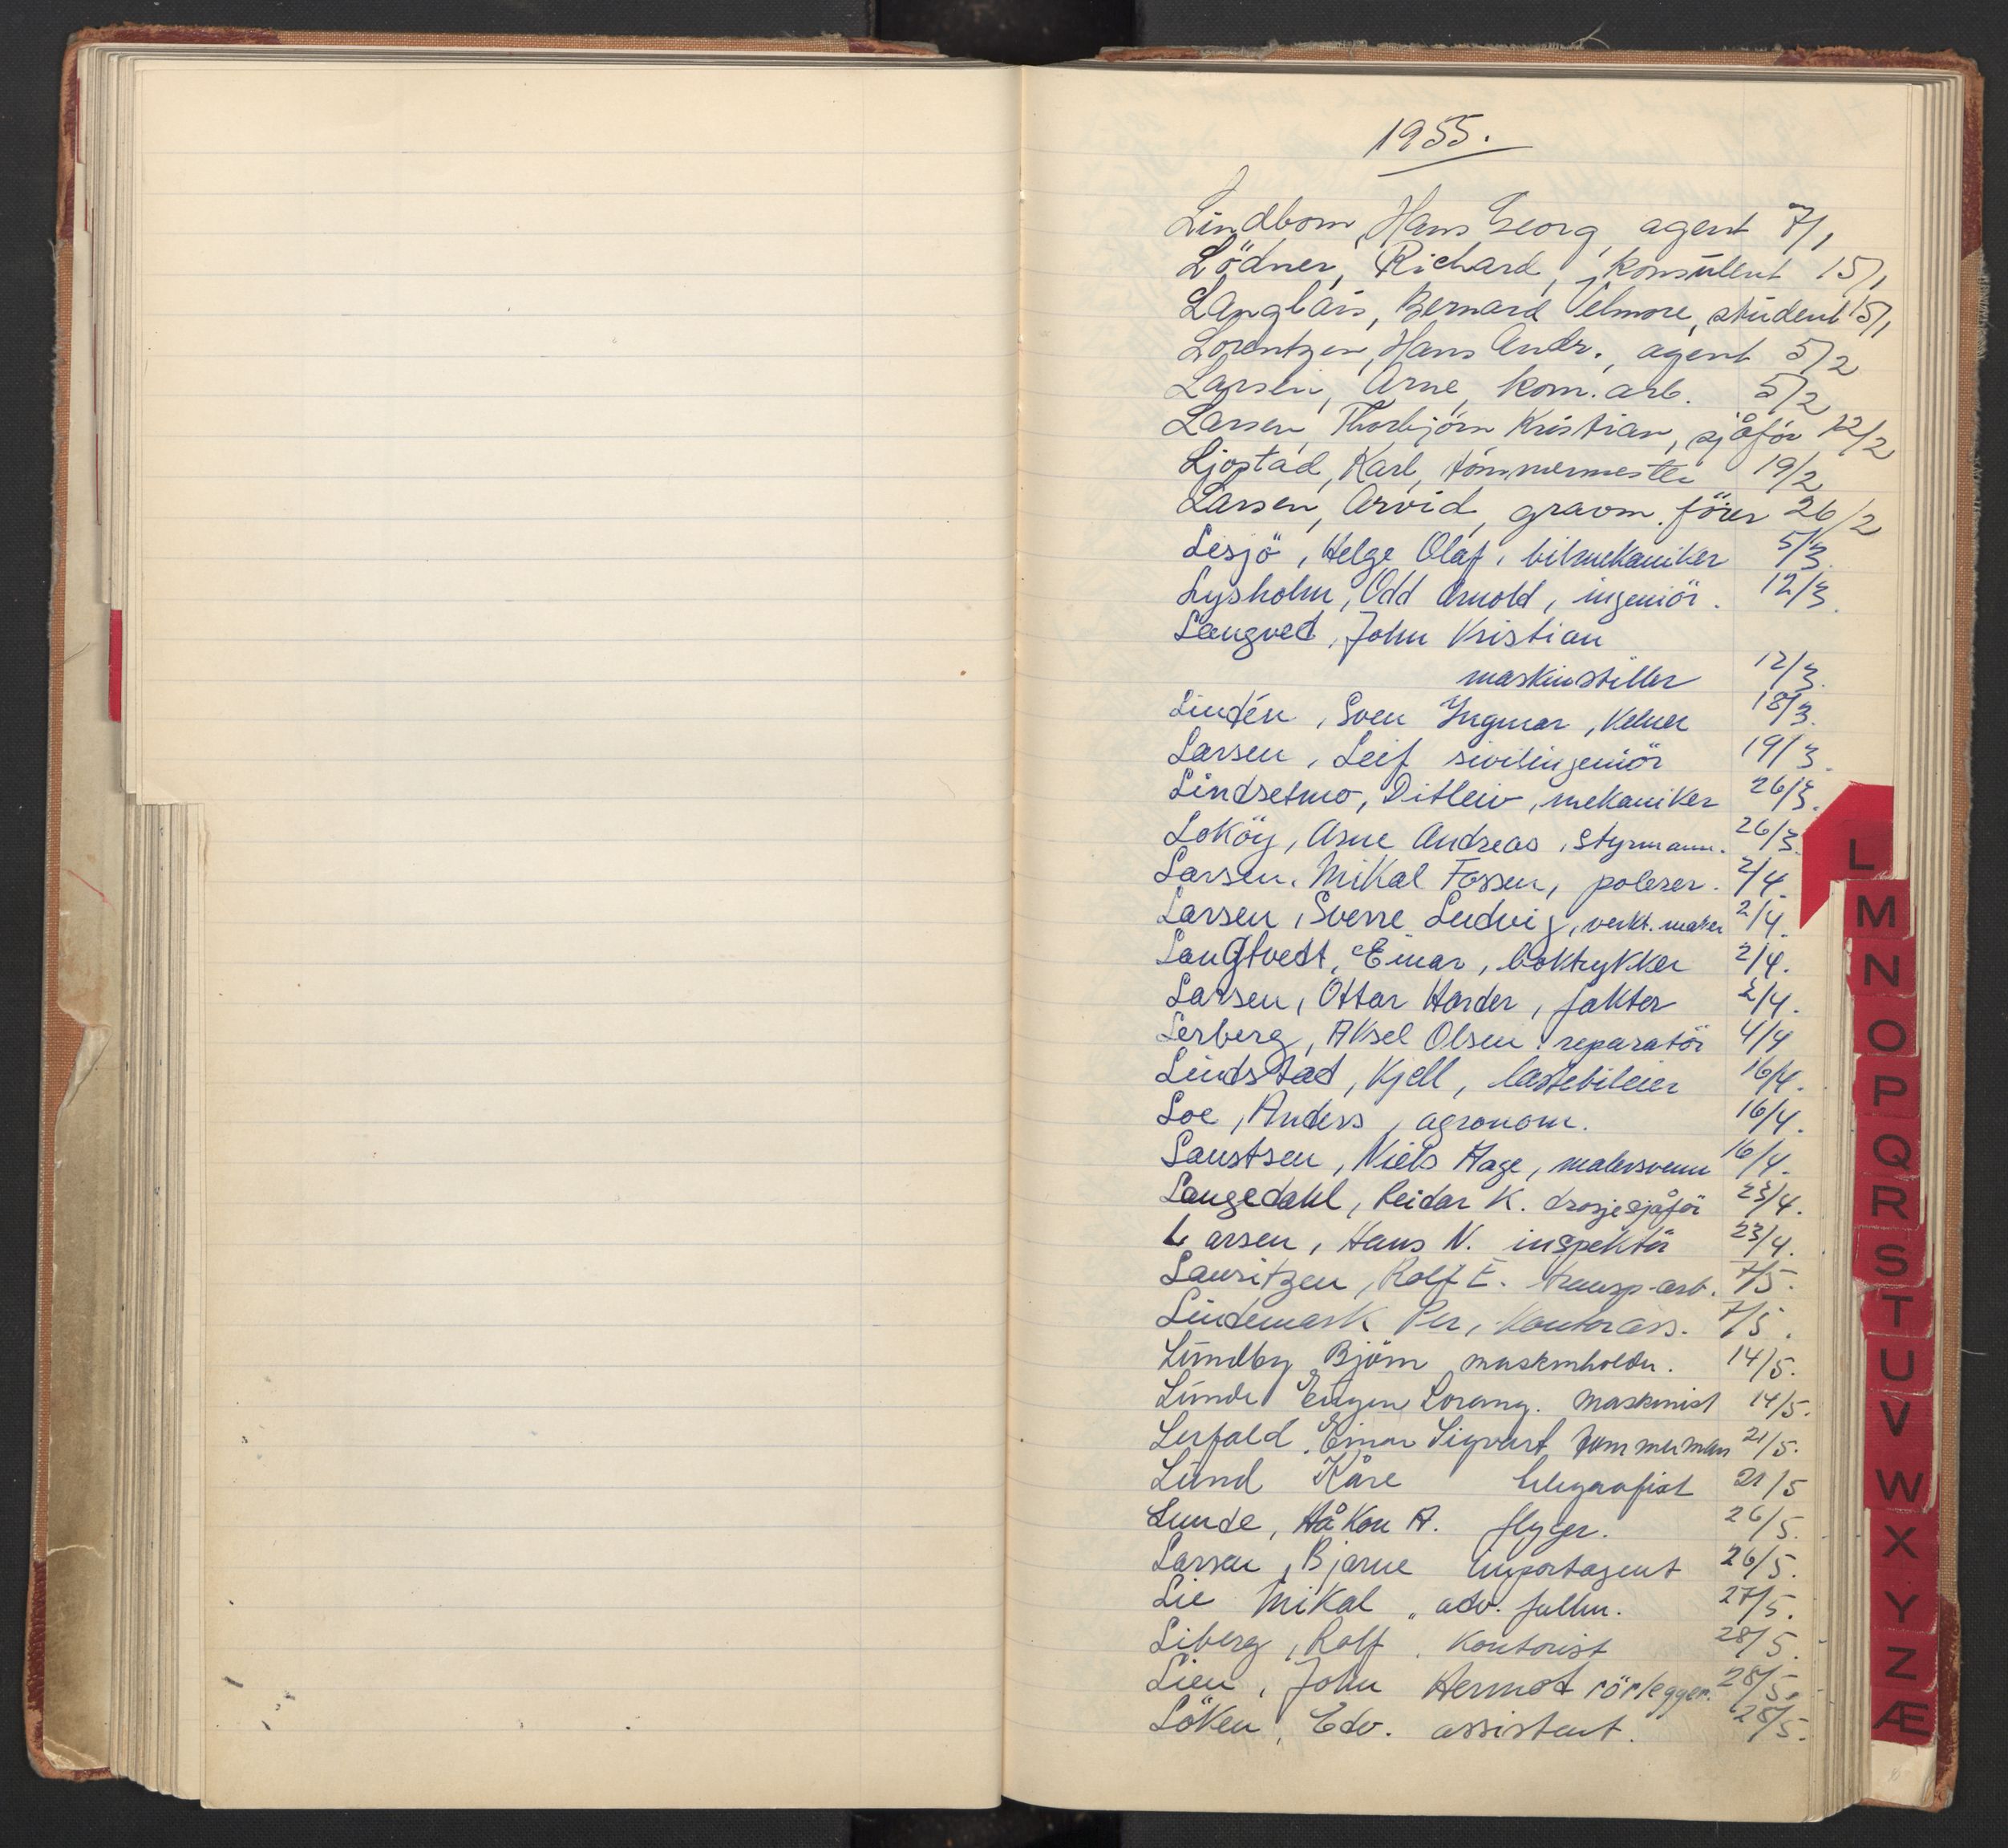 1955.
Lindbom, Hans Georg, agent 7/1
Lödner, Richard, konsulent 15/1
Langlais, Bernard Velmore, student 15/1
Lorentzen, Hans Andr., agent 5/2
Larsen, Arne, kom. arb. 5/2
Larsen, Thorbjörn Kristian, sjåför 12/2
Ljostad, Karl, tömmermester 19/2
Larsen, Arvid, gravm. förer 26/2
Lesjö, Helge Olaf, bilmekaniker 5/3.
Lysholm, Odd Arnold, ingeniör. 12/3.
Langved, John Kristian
maskinstiller 12/3.
Lindén, Sven Yngmar, kelner 18/3.
Larsen, Leif sivilingeniör 19/3.
Lindsetmo, Ditleiv, mekaniker 26/3.
Loköy, Arne Andreas, styrmann. 26/3.
Larsen, Mikal Fossen, polerer. 2/4.
Larsen, Sverre Ludvig, verkt. maker 2/4.
Langtvedt, Einar, boktrykker 2/4.
Larsen, Ottar Harder, faktor 2/4.
Lerberg, Aksel Olsen, reparatör 4/4
Lindstad, Kjell, lastebileier 16/4.
Loe, Anders, agronom. 16/4.
Laustsen, Niels Aage, malersvenn 16/4.
Langedahl, Reidar K. drosjesjåför 23/4.
Larsen, Hans N. inspektör 23/4.
Lauritzen, Rolf E. transp.-arb. 7/5.
Lindemark Per, kontorass. 7/5.
Lundby Björn maskinholder. 14/5.
Lunde Eugen Lorang. Maskinist 14/5.
Lerfald. Einar Sigvart tömmermann 21/5.
Lund Kåre telegrafist 21/5
Lunde, Håkon A. flyger. 26/5.
Larsen, Bjarne importagent 26/5.
Lie Mikal, adv. fullm. 27/5.
Liberg, Rolf, kontorist 28/5.
Lien, John Hermod rörlegger. 28/5.
Löken, Edv. assistent. 28/5.
L
M
N
O
P
Q
R
S
T
U
V
W
X
Y
Z
Æ